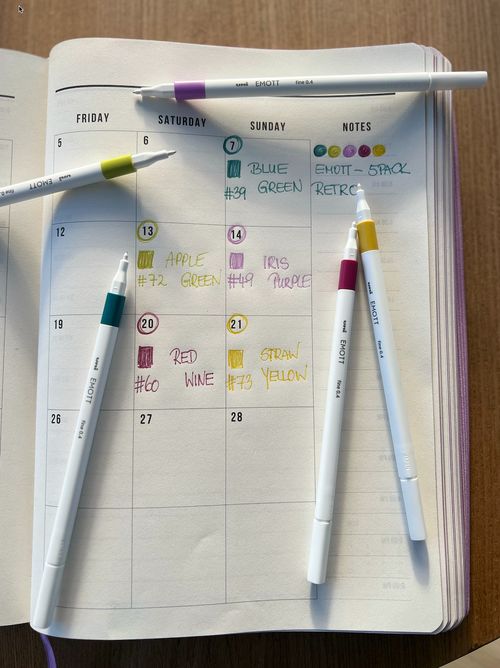 uni EMOTT fine 0.4
FRIDAY SATURDAY SUNDAY NOTES
5 6 7
BLUE
#39 GREEN
EMOTT - 5PACK
RETRO
EMOTT
12 13 14
APPLE
#72 GREEN
IRIS
#49 PURPLE
19 20 21
RED
#60 WINE
STRAW
#73 YELLOW
uni EMOTT fine 0.4
uni EMOTT fine 0.4
uni EMOTT fine 0.4
26 27 28